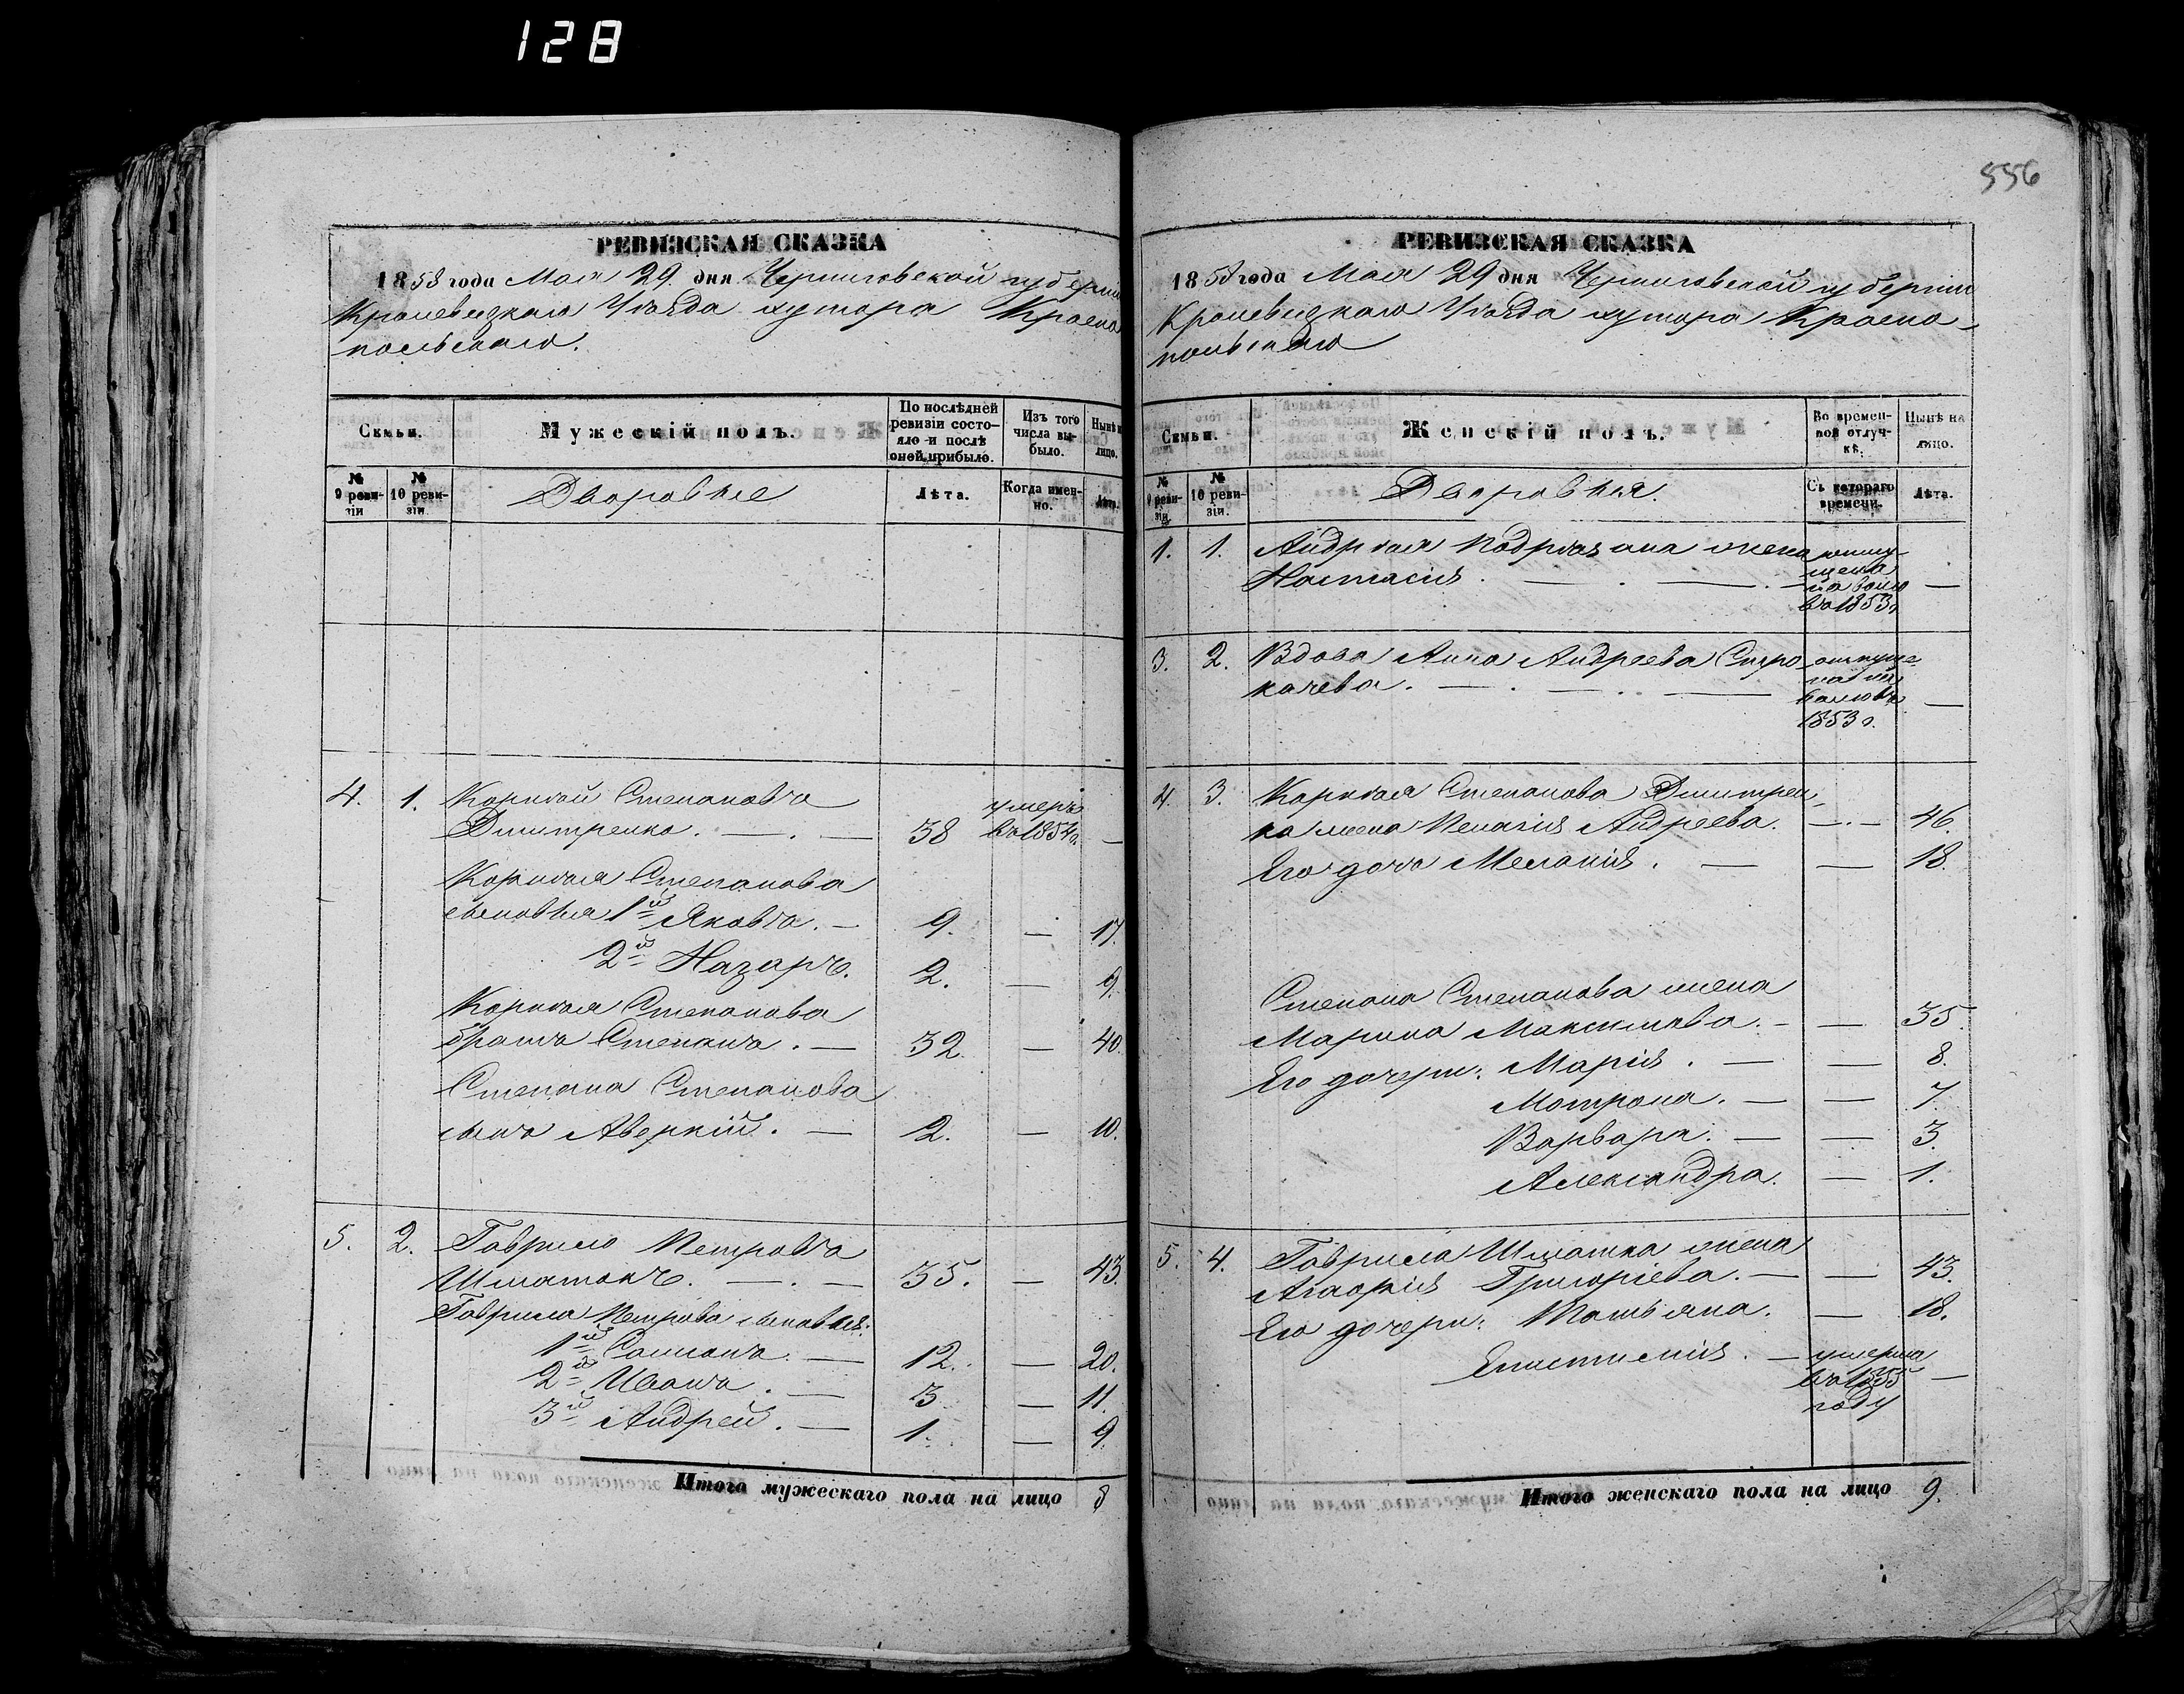 128
556
РЕВИЗСКАЯ СКАЗКА
1858 года Мая 29 дня Черниговской губерніи
Кролевецкаго Уѣзда хутора Краснопольскаго.
Семьи.
Мужескій полъ.
По послѣдней ревизіи состояло и послѣ оной прибыло.
Изъ того числа выбыло.
Нынѣ на лицо.
№ 9 ревизіи
№ 10 ревизіи.
Дворовые
Лѣта.
Когда именно.
Лѣта.
4. 1. Корнѣй Степановъ
Дмитренко. 38 умеръ въ 1854 г. —
Корнѣя Степанова
сыновья 1й Яковъ. 9. — 17.
2й Назаръ. 2. — 9.
Корнѣя Степанова
братъ Степанъ. 32 — 40.
Степана Степанова
сынъ Аверкій. 2. — 10.
5. 2. Гаврило Петровъ
Шматокъ. 35. — 43.
Гаврила Петрова сыновья:
1й 12. — 20.
2й Иванъ. 3 — 11.
3й Андрей. 1. — 9.
Итого мужескаго пола на лицо 8
РЕВИЗСКАЯ СКАЗКА
1858 года Мая 29 дня Черниговской губерніи
Кролевецкаго Уѣзда хутора Красно-
польскаго
Семьи.
Женскій полъ.
Во временной отлучкѣ.
Нынѣ на лицо.
№ 9 ревизіи
№ 10 ревизіи.
Дворовыя.
Съ котораго времени.
Лѣта.
1. 1. Андрѣя жена отпущена на волю въ 1853 г.
Настасія. —
3. 2. Вдова Анна Андреева 1853 г. —
4. 3. Корнѣя Степанова Дмитрен-
ка жена Пелагія Андреева. — 46.
Его дочь Меланія. — 18.
Степана Степанова жена
Марина Максимова. — 35.
Его дочери: Марія. — 8.
Мотрона. — 7.
Варвара. — 3.
Александра. — 1.
5. 4. Гаврила Шматка жена
Агафія Григоріева. — 43.
Его дочери: Татьяна. — 18.
Епистимія. — умерла въ 1855 году —
Итого женскаго пола на лицо 9.